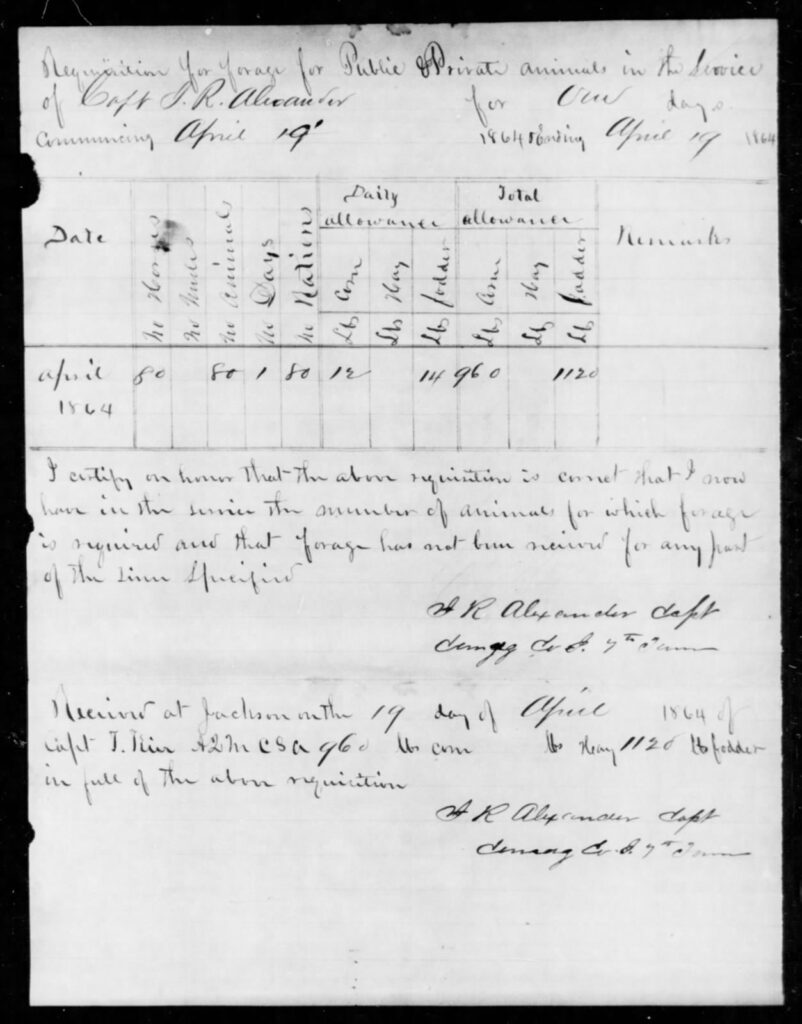 Requisition for forage for Public & Private animals in the Service
of Capt J. R. Alexander for One days
Commencing April 19 1864 & Ending April 19 1864
Date No Horses No Mules No Animals No Days No Rations Daily allowance Total allowance Remarks
Lbs Corn Lbs Hay Lbs fodder Lbs Corn Lbs Hay Lbs fodder
April 80 80 1 80 12 14 960 1120
1864
I certify on honor that the above requisition is correct that I now
have in the service the number of animals for which forage
is required and that forage has not been recieved for any part
of the time Specified
J R Alexander Capt
Co 7th Tenn
Received at Jackson on the 19 day of April 1864 of
Capt T. AQM CSA 960 lbs corn lbs Hay 1120 lbs fodder
in full of the above requisition
J R Alexander Capt
Co 7th Tenn